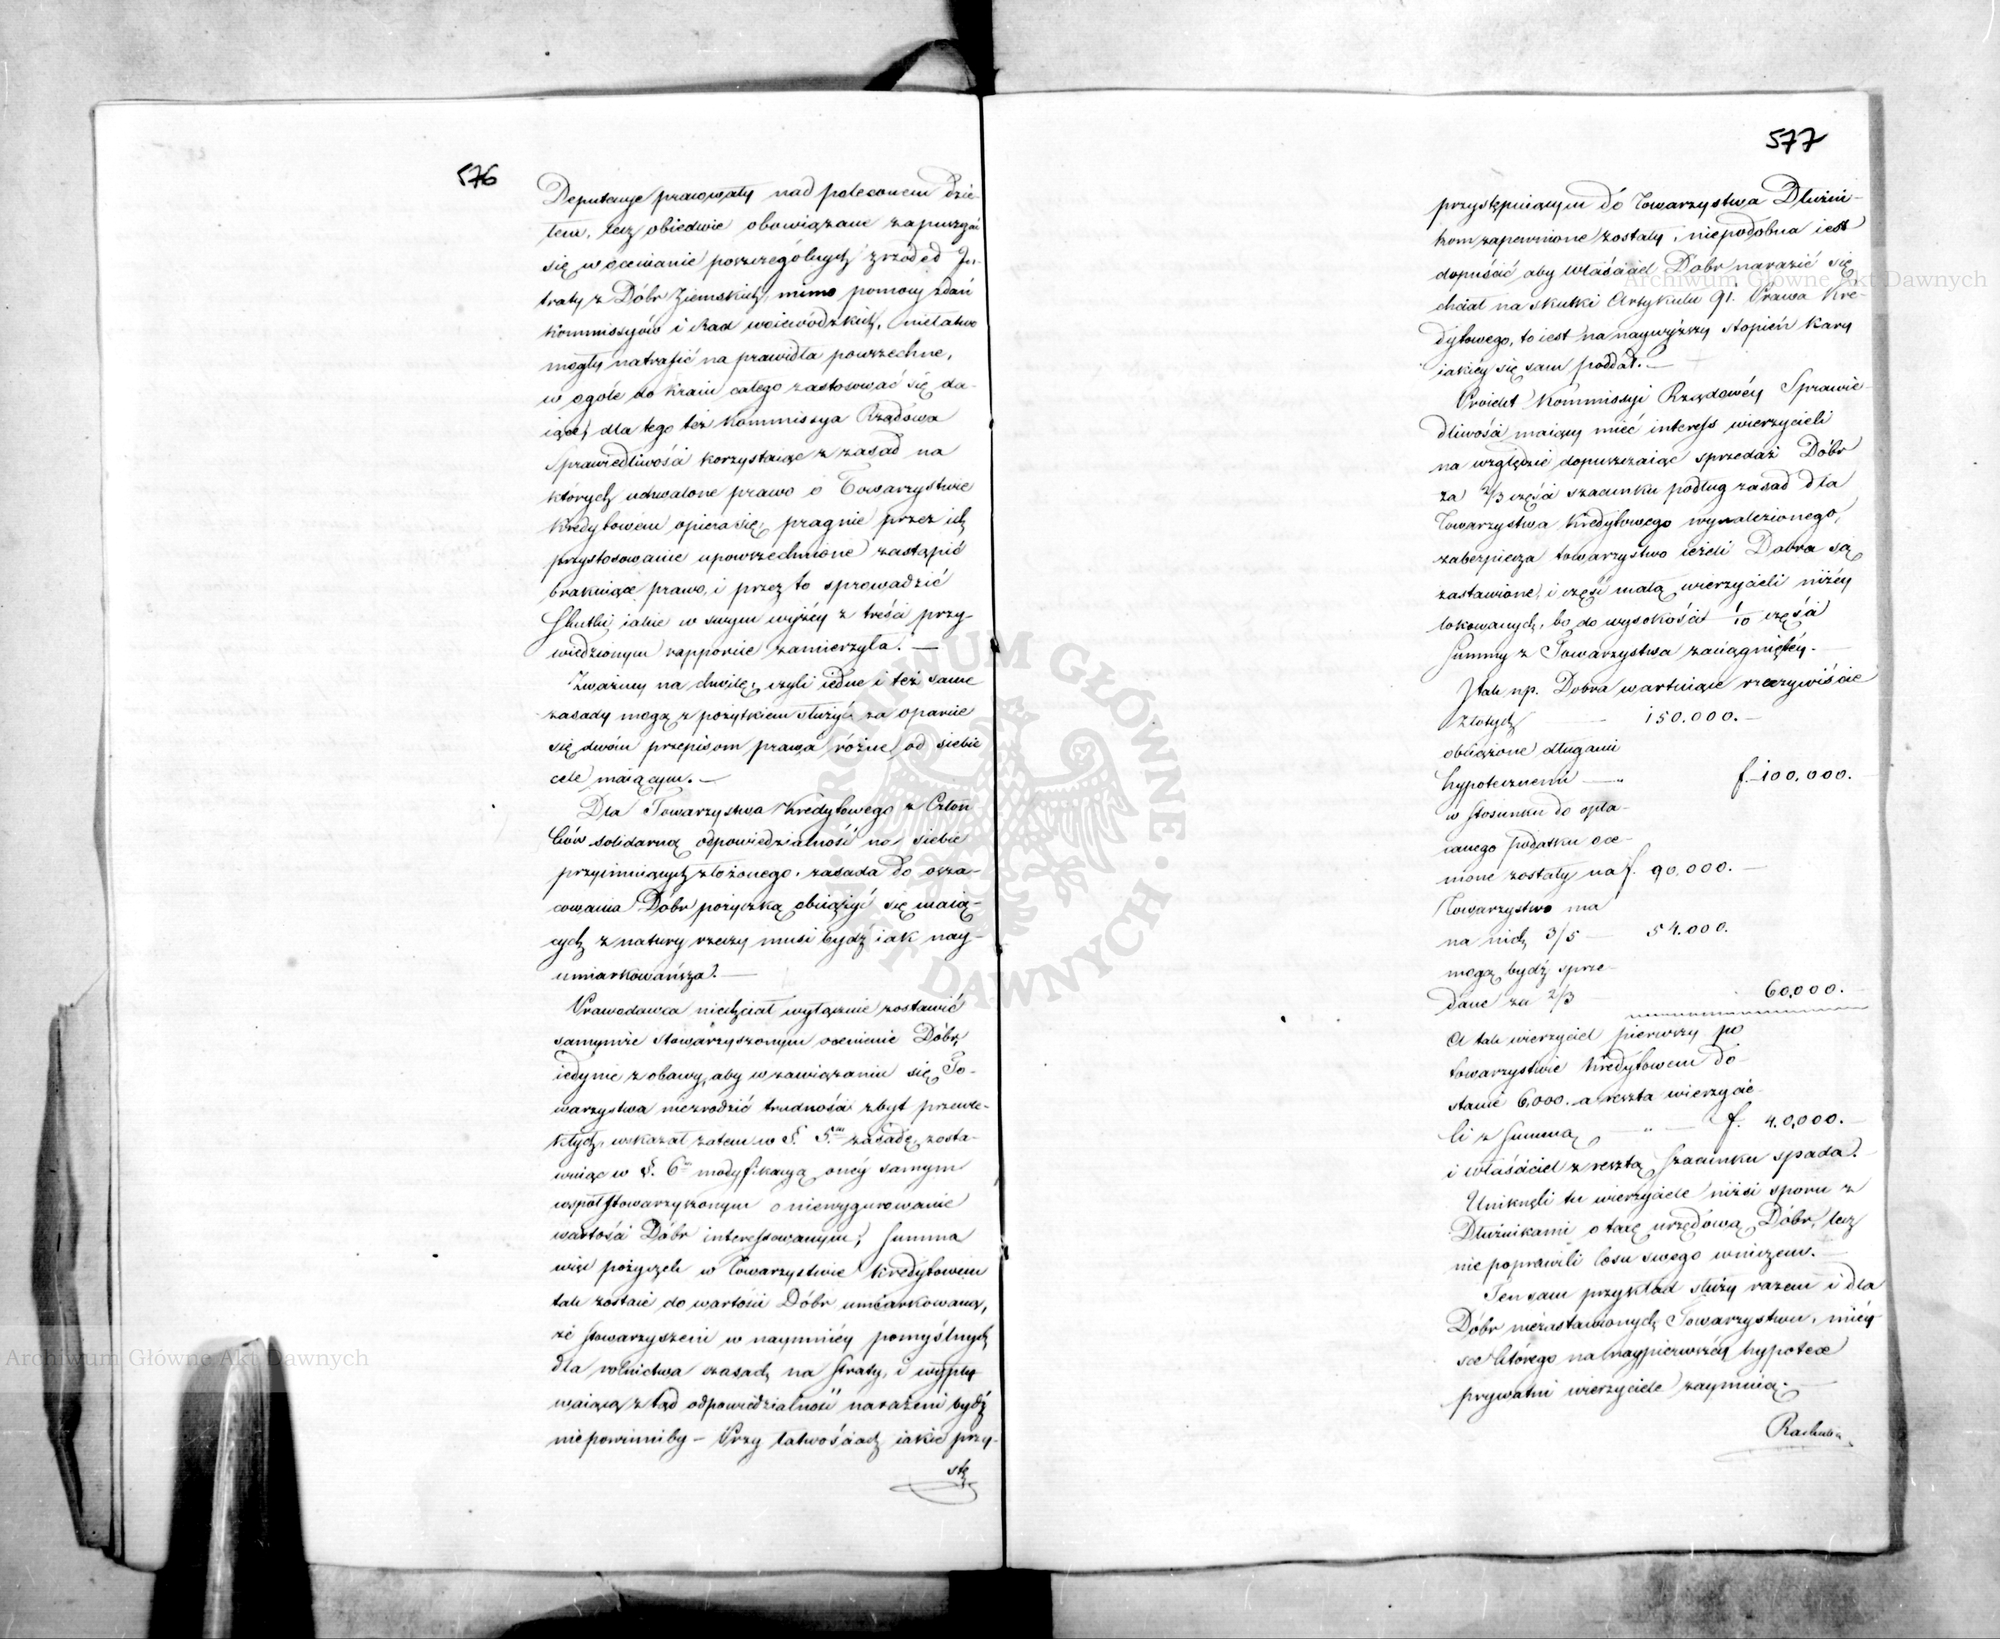 576
Deputacye pracowały nad poleconem dzie-
łem, lecz obiedwie obowiązane zapuszczać
się w ocenianie poszczególnych źrzódeł In-
traty z Dóbr Ziemskich, mimo pomocy zdań
Kommissyów i Rad woiewódzkich, niełatwo
mogły natrafić na prawidła powszechne,
w ogóle do Kraiu całego zastosować się da-
iące, dla tego też Kommissya Rządowa
Sprawiedliwości korzystaiąc z zasad na
których uchwalone prawo o Towarzystwie
Kredytowém opiera się, pragnie przez ich
przystosowanie upowszechnione zastąpić
brakuiące prawo, i przez to sprowadzić
skutki iakie w swym wyżéy z treści przy-
wiedzionym rapporcie zamierzyła. —
Zważmy na chwilę, czyli iedne i też same
zasady mogą z pożytkiem służyć za oparcie
się dwóm przepisom prawa różne od siebie
cele maiącym. —
Dla Towarzystwa Kredytowego z Człon
ków solidarną odpowiedzialność na siebie
przyimuiących złożonego, zasada do osza-
cowania Dóbr pożyczką obciążyć się maią-
cych z natury rzeczy musi bydź iak nay-
umiarkowańsza. —
Prawodawca niechciał wyłącznie zostawić
samymże stowarzyszonym ocenienie Dóbr,
iedynie z obawy, aby w zawiązaniu się To-
warzystwa niezrodzić trudności zbyt przewle-
kłych, wskazał zatem w §. 5m zasadę, zosta-
wuiąc w §. 6m modyfikacyą onéy samym
współstowarzyszonym o niewygurowanie
wartości Dóbr interessowanym; Summa
więc pożyczek w Towarzystwie Kredytowém
tak zostaie do wartości Dóbr umiarkowaną,
że stowarzyszeni w naymniéy pomyślnych
dla rolnictwa czasach na straty, i wypły
waiącą z tąd odpowiedzialność narażeni bydź
niepowinniby — Przy łatwościach iakie przy-
stę
577
przystępuiącym do Towarzystwa Dłużni-
kom zapewnione zostały, niepodobna iest
dopuścić aby właściciel Dóbr narazić się
chciał na skutki Artykułu 91. Prawa Kre-
dytowego, to iest na naywyższy stopień Kary
iakiéy się sam poddał. —
Proiekt Kommissyi Rządowéy Sprawie
dliwości maiący mieć interess wierzycieli
na względzie dopuszczaiąc sprzedaż Dóbr
za 2/3 części szacunku podług zasad dla
Towarzystwa Kredytowego wynalezionego,
zabezpiecza towarzystwo ieżeli Dobra są
zastawione, i część małą wierzycieli niżéy
lokowanych, bo do wysokości 1/10 części
Summy z Towarzystwa zaciągniętéy. —
I tak np. Dobra wartuiące rzeczywiście
złotych — 150.000. —
obciążone długami
hypotecznemi — " f. 100,000.
w stosunku do opła-
canego podatku oce-
nione zostały na f. 90,000. —
Towarzystwo ma
na nich 3/5 — 54.000.
mogą bydź sprze-
dane za 2/3 60,000.
A tak wierzyciel pierwszy po
towarzystwie Kredytowem do
stanie 6,000. a reszta wierzycie
li z Summą — " — f. 40,000. —
i właściciel z resztą szacunku spada. —
Uniknęli tu wierzyciele niżsi sporu z
Dłużnikami o taxę urzędową Dóbr, lecz
nie poprawili losu swego wniczem. —
Ten sam przykład służy razem i dla
Dóbr niezastawionych Towarzystwu, miéy
sce którego na naypierwszéy hypotece
prywatni wierzyciele zaymuią. —